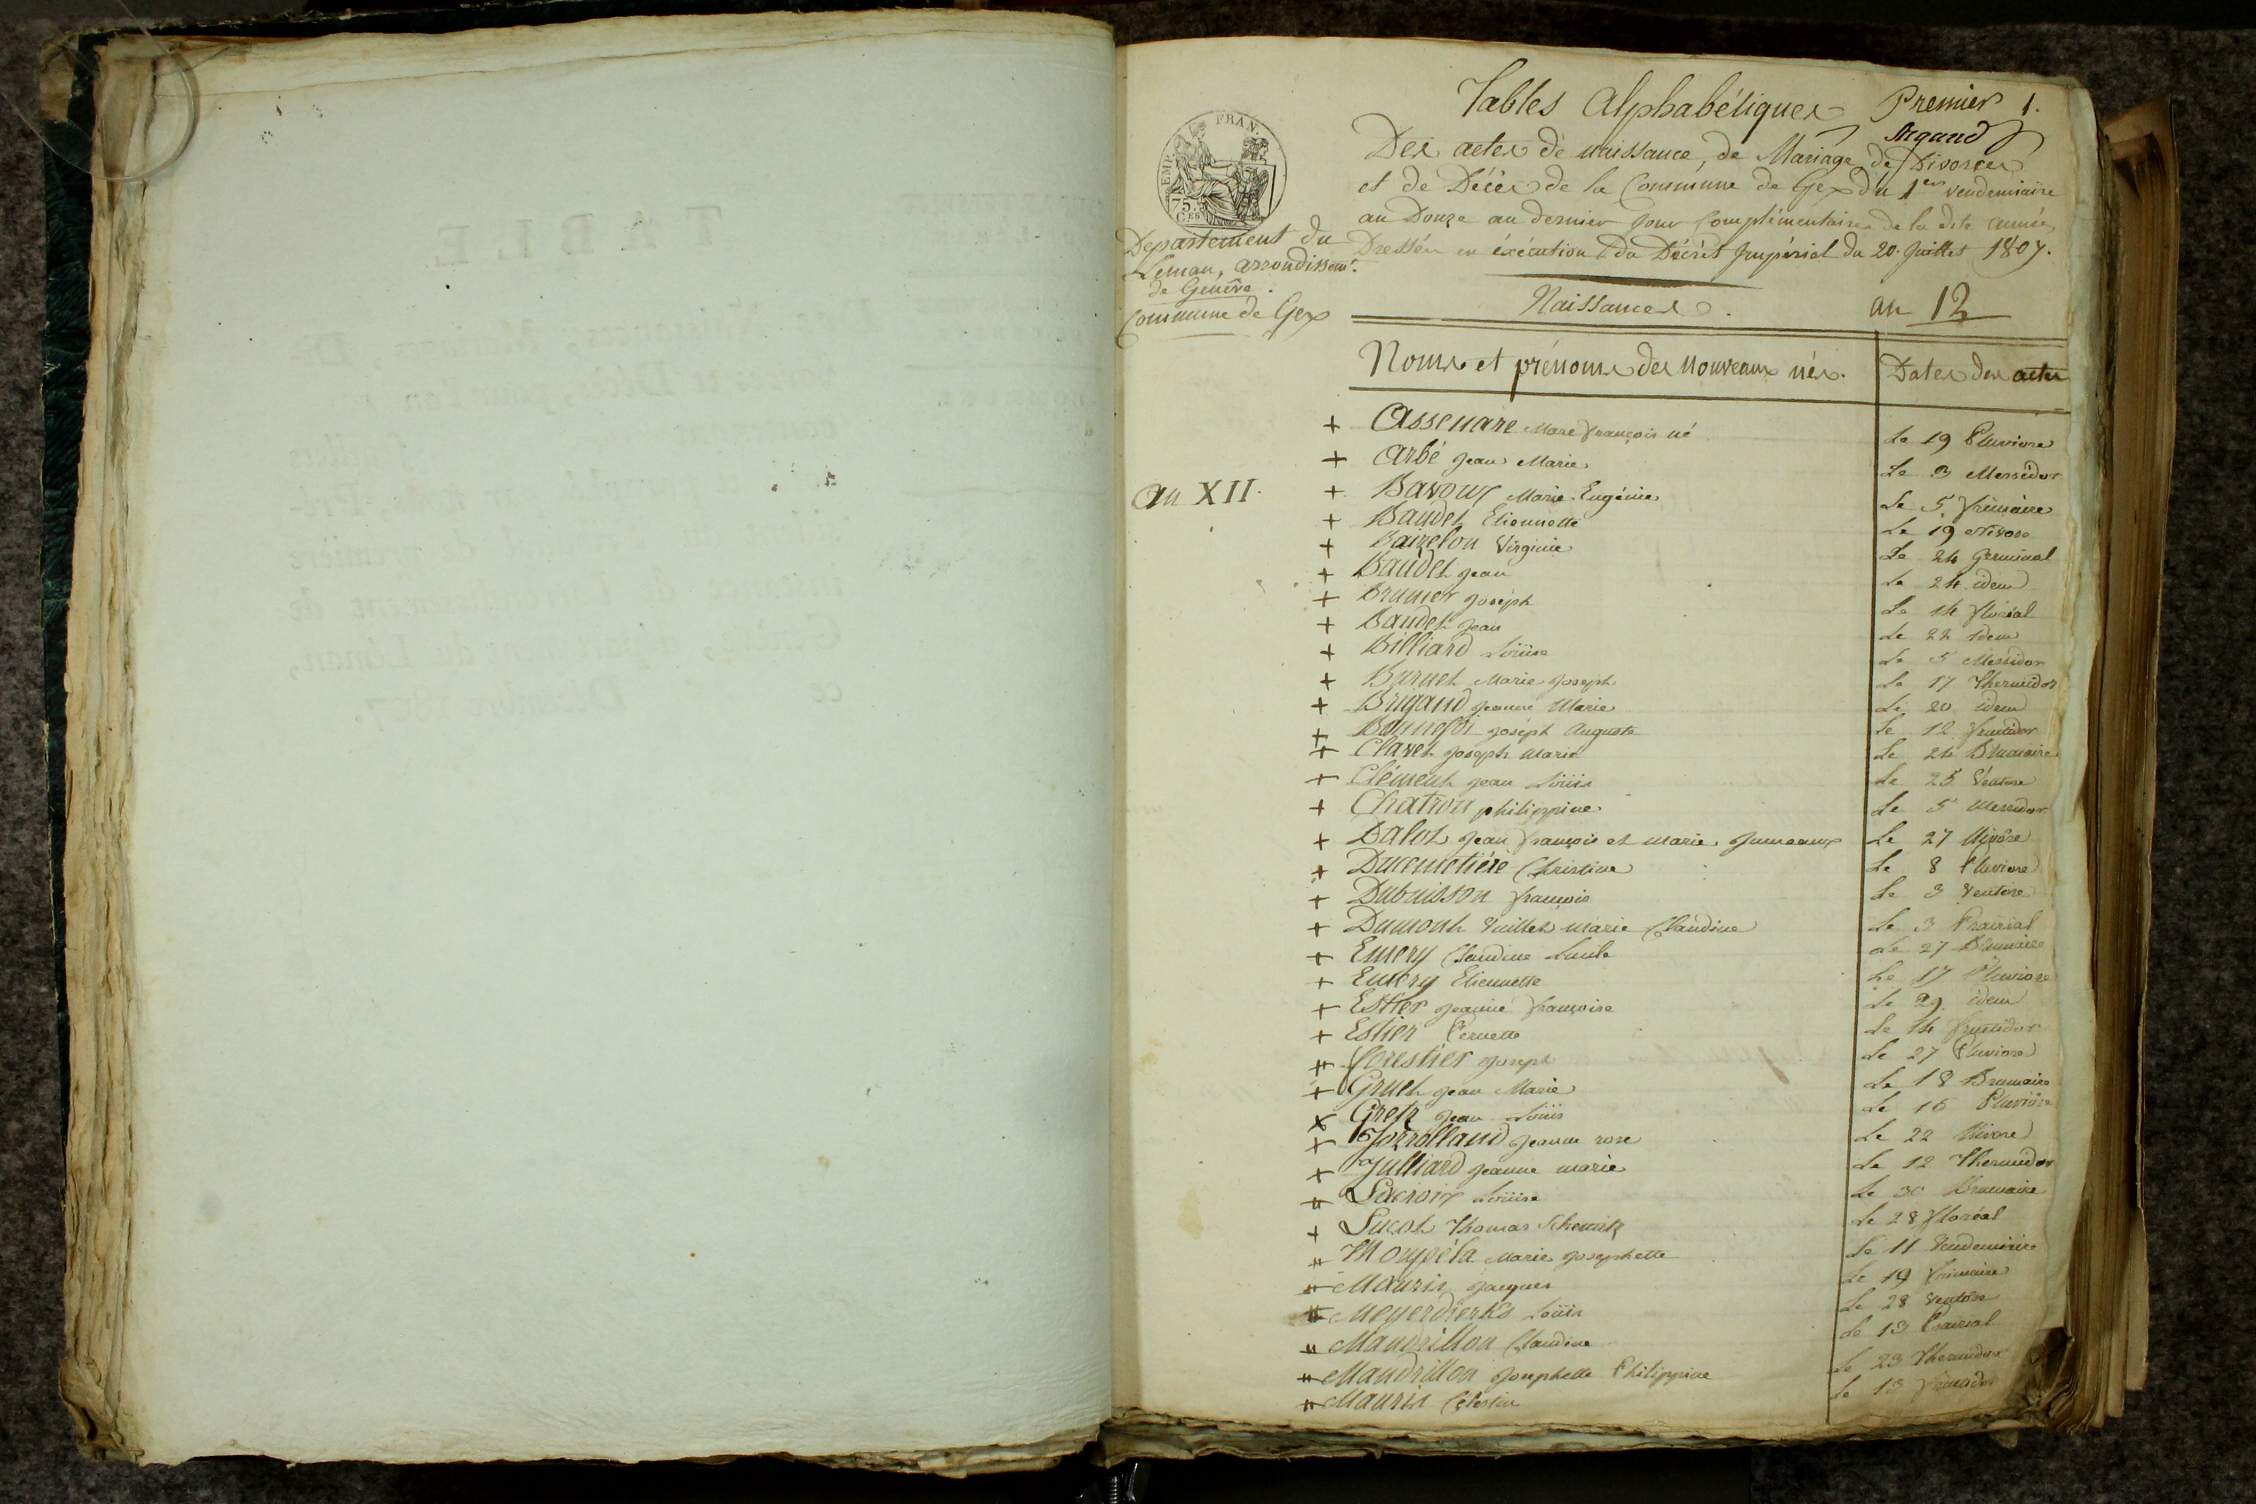 Tables Alphabétiques Premier 1.
Argand
Des actes de naissance, de Mariage de Divorces
et de Décès de la Commune de Gex du 1er vendemiaire
an Douze au dernier jour Complémentaire de la dite année,
Dressées en éxécution du Décret Impérial du 20 Juillet 1807.
EMP. FRAN.
75.
Ces
Departement du
Leman, arrondissemt.
de Genêve.
Commune de Gex
Naissances. an 12
Noms et prénoms des Nouveaux nés. Dates des actes
an XII.
+ Assenare Marc françois né Le 19 Pluviose
+ Arbé Jean Marie Le 3 Messidor
+ Bavoux Marie Eugénie Le 5 frimaire
+ Baudet Etiennette Le 19 Nivose
+ Virginie Le 24 Germinal
+ Baudet Jean Le 24 idem
+ Brunier Joseph Le 14 floréal
+ Baudet Jean Le 22 idem
+ Billiard Loüise Le 5 Messidor
+ Burnet Marie Joseph Le 17 Thermidor
+ Brigand Jeanne Marie Le 20 idem
+ Bonnefoi Joseph Auguste Le 12 fructidor
+ Clavet Joseph Marie Le 24 Brumaire
+ Clément Jean Loüis Le 25 Ventose
+ Chatron philippine Le 5 Messidor
+ Dalot Jean françois et marie Jumeaux Le 27 Nivôse
+ Ducimetiére Christine Le 8 Pluviose
+ Dubuisson françois Le 3 Ventose
+ Dumont Vuillet marie Claudine Le 3 Prairial
+ Emery Claudine Le 27 Brumaire
+ Emery Etiennette Le 17 Pluviose
+ Estier Jeanne françoise Le 29 idem
+ Estier Pernette Le 14 fructidor
+ forestier Joseph Le 27 Pluviose
+ Gruet Jean Marie Le 18 Brumaire
+ Gretz Jean Loüis Le 16 Pluviose
+ Jeanne rose Le 22 Nivose
+ Julliard Jeanne marie Le 12 Thermidor
+ Lacroix Loüise Le 30 Brumaire
+ Lucot Thomas Le 28 floréal
+ Marie Josephette Le 11 Vendemiaire
+ Mauris Jacques Le 19 frimaire
+ Meyerdierks Loüis Le 28 Ventose
+ Mandrillon Claudine Le 13 Prairial
+ Mandrillon Josephette Philippine Le 23 Thermidor
+ Mauris Célestin Le 13 fructidor